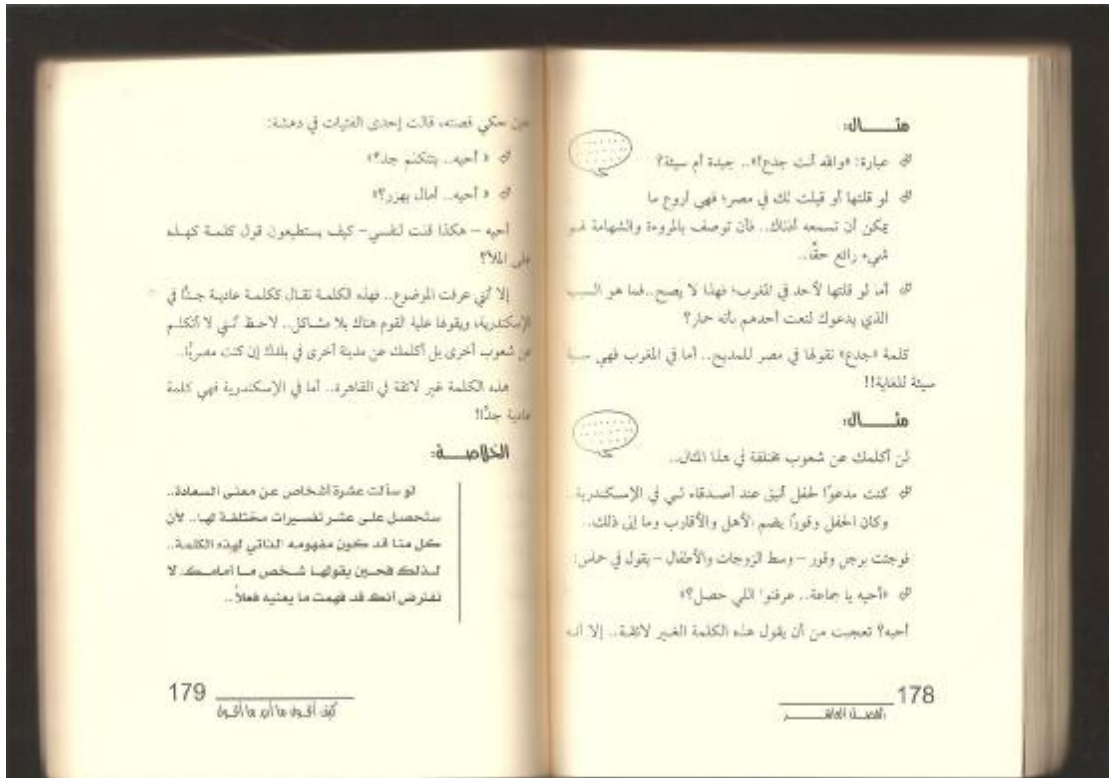 مثـــــال:
عبارة: «والله أنت جدع!».. جيدة أم سيئة؟
لو قلتها أو قيلت لك في مصر؛ فهي أروع ما
يمكن أن تسمعه أذناك.. فأن توصف بالمروءة والشهامة لهو
شيء رائع حقًا..
أما لو قلتها لأحد في المغرب؛ فهذا لا يصح.. فما هو السبب
الذي يدعوك لنعت أحدهم بأنه حمار؟
كلمة «جدع» نقولها في مصر للمديح.. أما في المغرب فهي سبة
سيئة للغاية!!
مثـــــال:
لن أكلمك عن شعوب مختلفة في هذا المثال..
كنت مدعوًا لحفل أنيق عند أصدقاء لي في الإسكندرية..
وكان الحفل وقورًا يضم الأهل والأقارب وما إلى ذلك..
فوجئت برجل وقور – وسط الزوجات والأطفال – يقول في حماس:
«أحيه يا جماعة.. عرفتوا اللي حصل؟»
أحيه؟ تعجبت من أن يقول هذه الكلمة الغير لائقة.. إلا أنه
178
الفصـل العاشـــر
حين حكي قصته، قالت إحدى الفتيات في دهشة:
« أحيه.. بتتكلم جد؟»
« أحيه.. أمال بهزر؟»
أحيه – هكذا قلت لنفسي – كيف يستطيعون قول كلمة كهذه
على الملأ؟
إلا أني عرفت الموضوع.. فهذه الكلمة تقال ككلمة عادية جدًا في
الإسكندرية، ويقولها علية القوم هناك بلا مشاكل.. لاحظ أنني لا أتكلم
عن شعوب أخرى بل أكلمك عن مدينة أخرى في بلدك إن كنت مصريًا..
هذه الكلمة غير لائقة في القاهرة.. أما في الإسكندرية فهي كلمة
عادية جدًا!
الخلاصـــة:
لو سألت عشرة أشخاص عن معنى السعادة..
ستحصل على عشر تفسيرات مختلفة لها.. لأن
كل منا قد كون مفهومه الذاتي لهذه الكلمة..
لذلك فحين يقولها شخص ما أمامك، لا
تفترض أنك قد فهمت ما يعنيه فعلاً..
179
كيف أقول ما أريد بما أقول